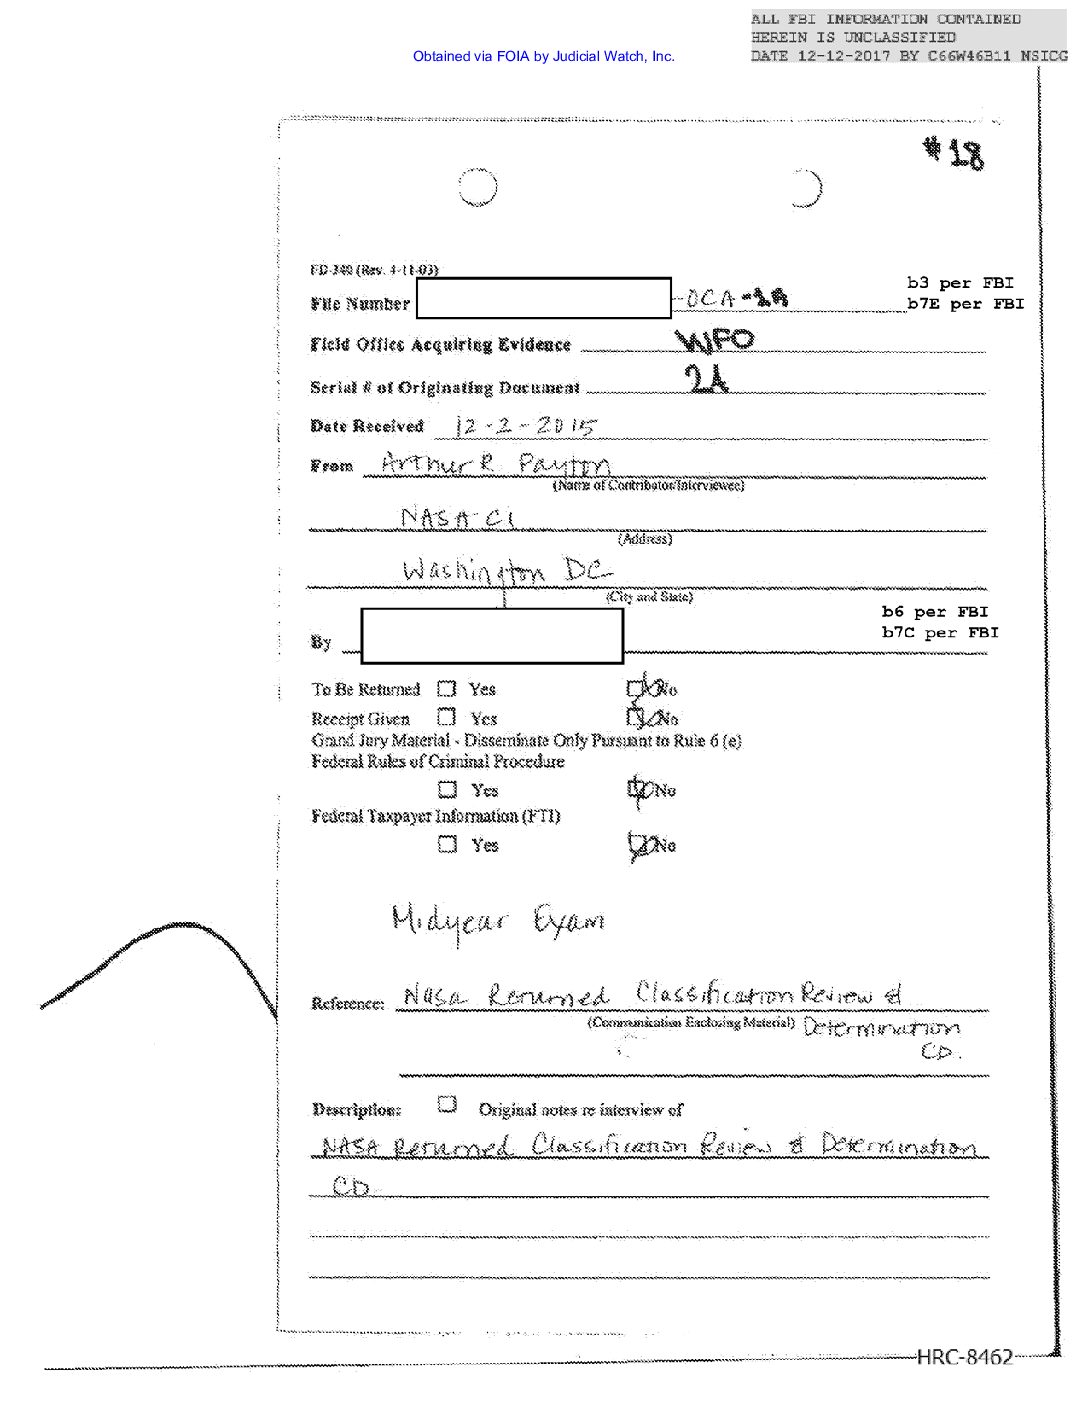 ALL FBI INFORMATION CONTAINED
HEREIN IS UNCLASSIFIED
DATE 12-12-2017 BY C66W46B11 NSICG
Obtained via FOIA by Judicial Watch, Inc.
#18
FD-340 (Rev. 4-11-03)
File Number -OCA-1A
b3 per FBI
b7E per FBI
Field Office Acquiring Evidence WFO
Serial # of Originating Document 2A
Date Received 12-2-2015
From Arthur R Payton
(Name of Contributor/Interviewee)
NASA-CI
(Address)
Washington DC
(City and State)
b6 per FBI
b7C per FBI
By
To Be Returned Yes No
Receipt Given Yes No
Grand Jury Material - Disseminate Only Pursuant to Rule 6 (e)
Federal Rules of Criminal Procedure
Yes No
Federal Taxpayer Information (FTI)
Yes No
Midyear Exam
Reference: Nasa Returned Classification Review &
(Communication Enclosing Material) Determination
CD.
Description: Original notes re interview of
NASA Returned Classification Review & Determination
CD
HRC-8462